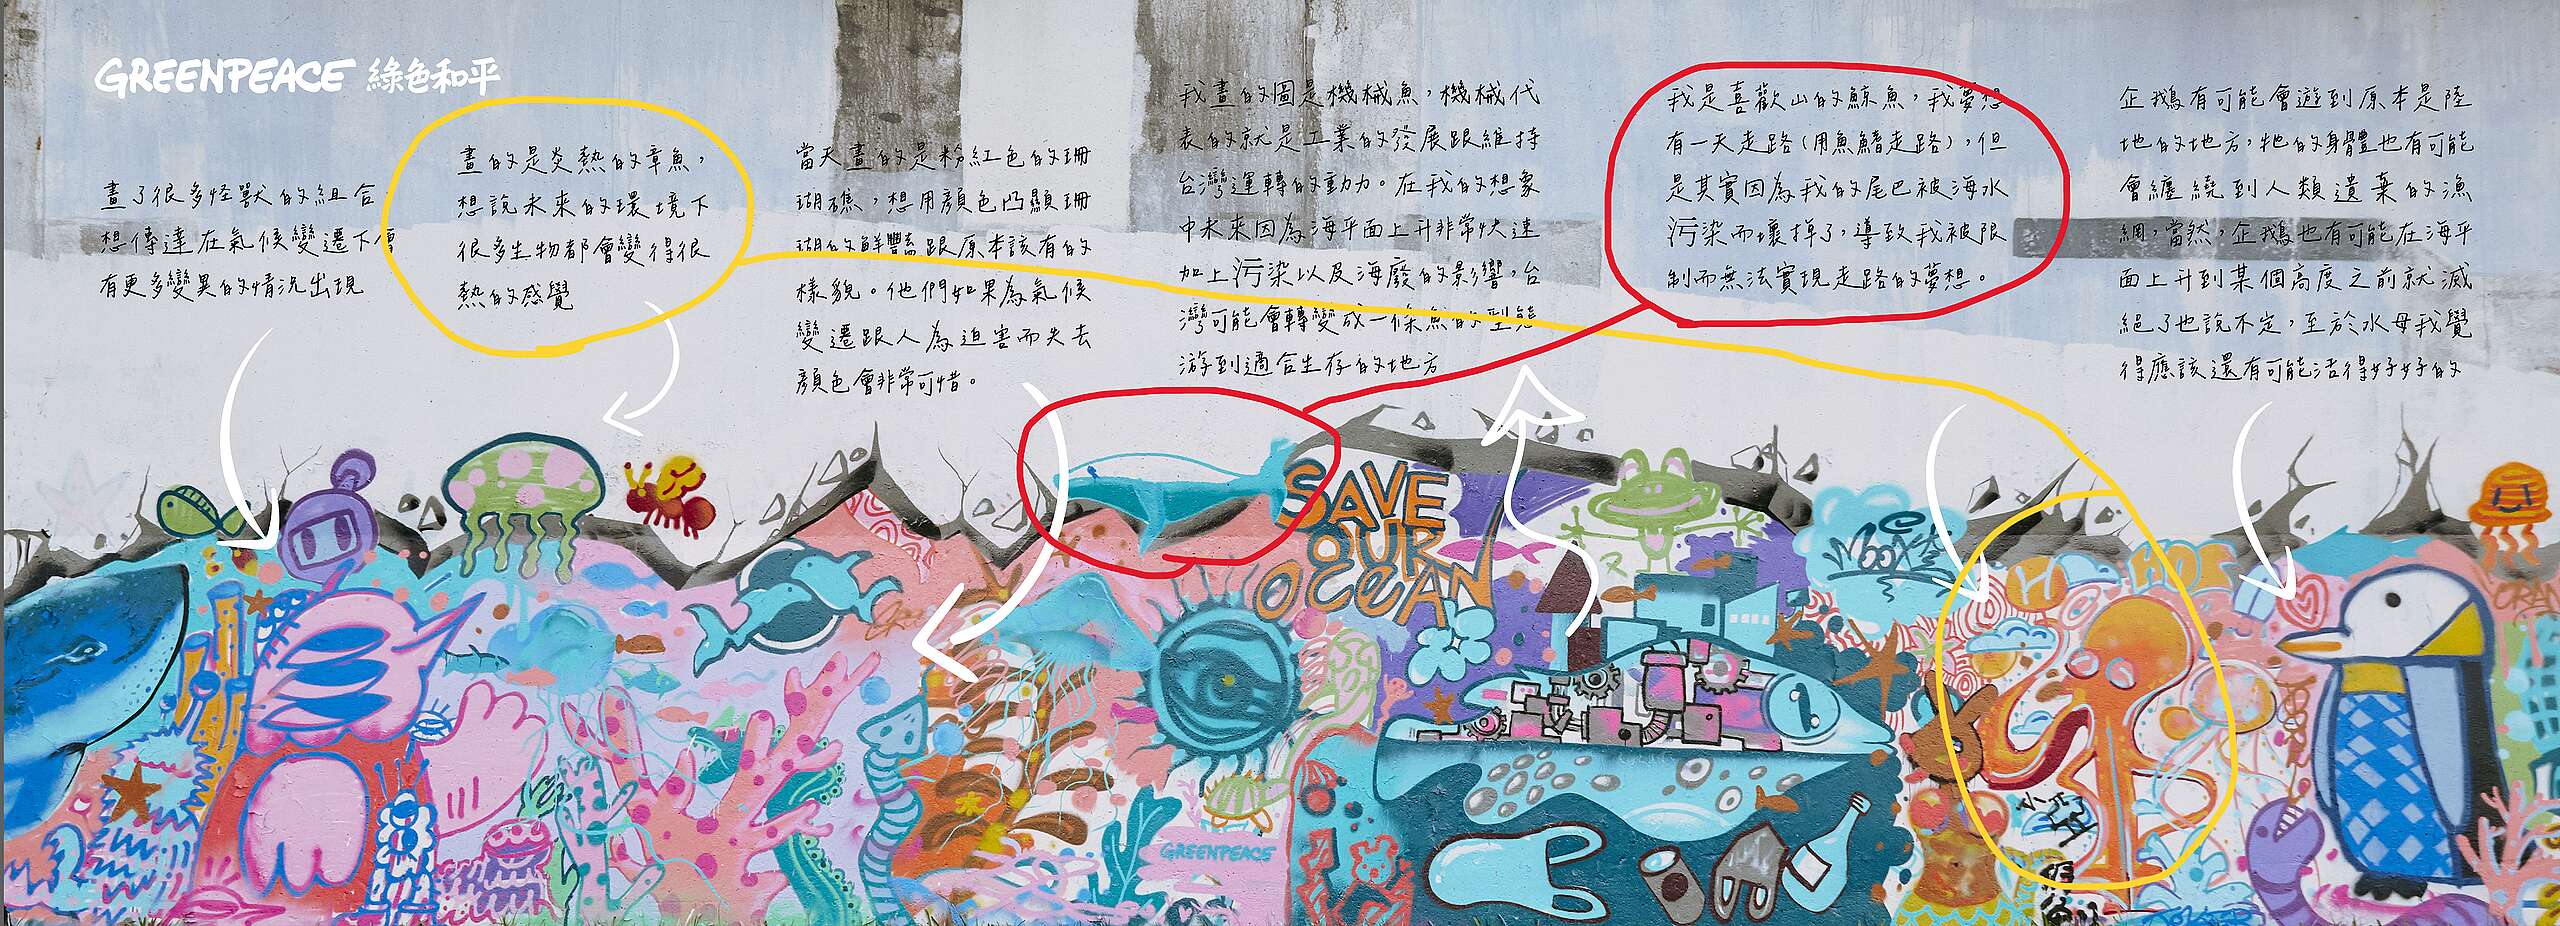 GREENPEACE 綠色和平
畫了很多怪獸的組合
想傳達在氣候變遷下會
有更多變異的情況出現
畫的是炎熱的章魚，
想說未來的環境下
很多生物都會變得很
熱的感覺
當天畫的是粉紅色的珊
瑚礁，想用顏色凸顯珊
瑚的鮮豔跟原本該有的
樣貌。他們如果為氣候
變遷跟人為迫害而失去
顏色會非常可惜。
我畫的圖是機械魚，機械代
表的就是工業的發展跟維持
台灣運轉的動力。在我的想象
中未來因為海平面上升非常快速
加上污染以及海廢的影響，台
灣可能會轉變成一條魚的型態
游到適合生存的地方
我是喜歡山的鯨魚，我夢想
有一天走路(用魚鰭走路)，但
是其實因為我的尾巴被海水
污染而壞掉了，導致我被限
制而無法實現走路的夢想。
企鵝有可能會遊到原本是陸
地的地方，牠的身體也有可能
會纏繞到人類遺棄的漁
網，當然，企鵝也有可能在海平
面上升到某個高度之前就滅
絕了也說不定，至於水母我覺
得應該還有可能活得好好的
SAVE
OUR
OCEAN
HOT
GREENPEACE